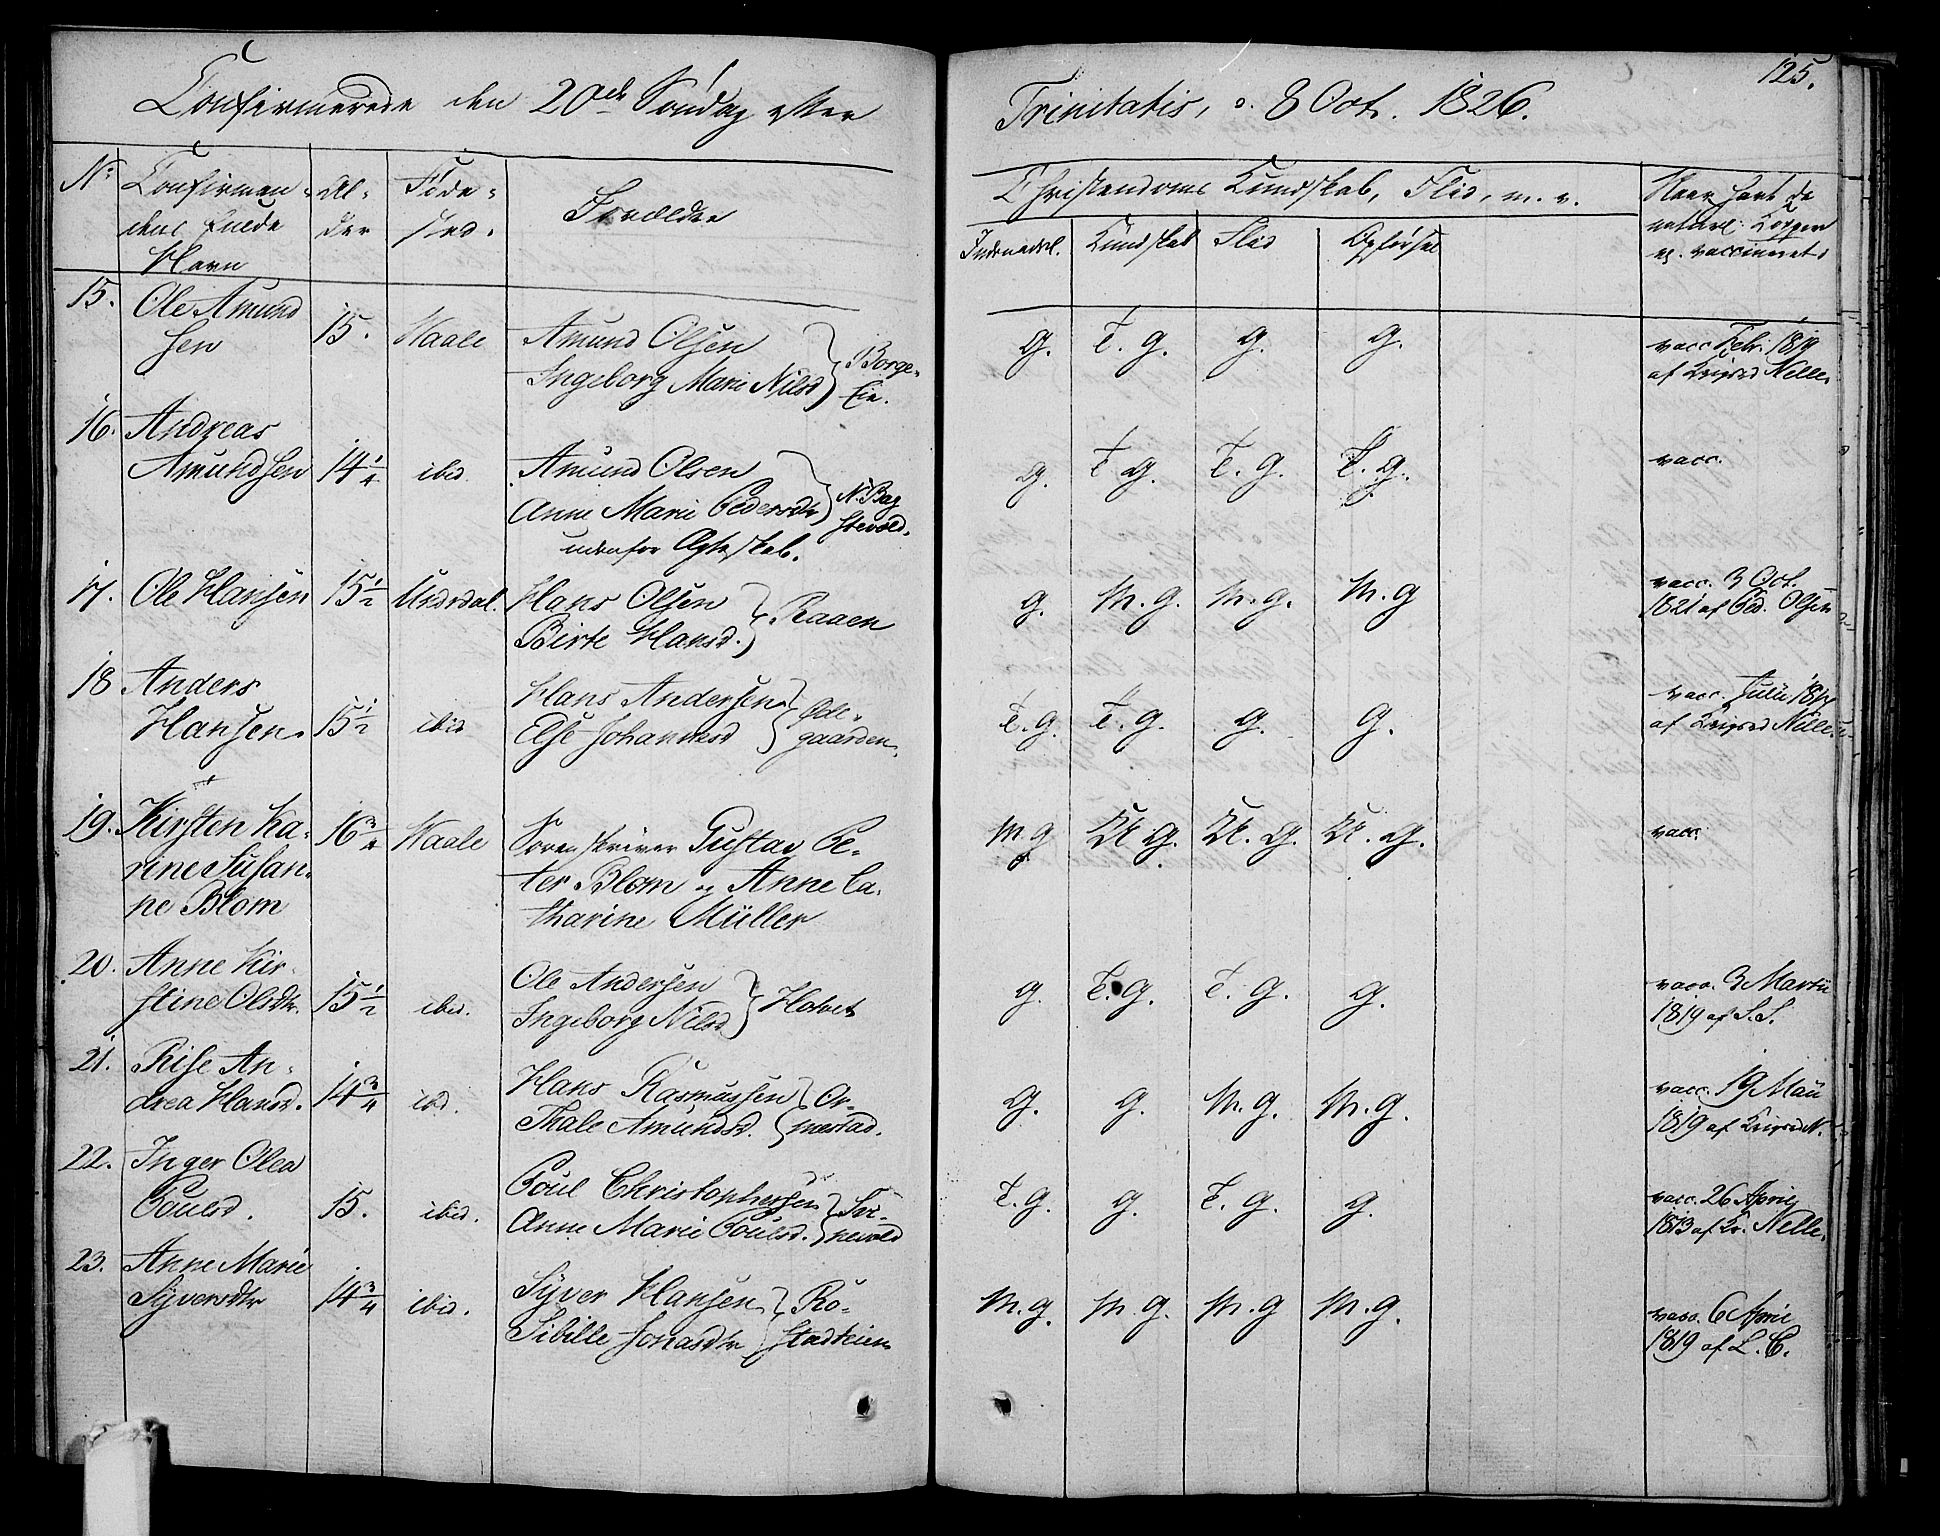 125.
Confirmerede den 20de Søndag efter Trinitatis, d. 8 Oct. 1826.
No Confirmandens fulde Navn Alder Fødested. Forældre Christendoms Kundskab, Flid, m. v. Naar havt de naturl: Kopper el. vaccineret.
Indenadsl. Kundskab Flid Opførsel
15. Ole Amund
sen 15. Waale Amund Olsen
Ingeborg Marie Nilsd } Borge-
Eie. g. T. g. g. g. vacc Febr. 1819
af Nelle.
16. Andreas
Amundsen 14 1/4 ibid. Amund Olsen
Anne Marie Pedersdtr } N. Bag
stevold.
udenfor Ægteskab. g. T g. T. g. T. g. vacc.
17. Ole Hansen 15 1/2 Undrdal. Hans Olsen
Birte Hansd. } Raaen g. M. g. M. g. M. g vacc. 3 Oct.
1821 af Ped. Olsen
18 Anders
Hansen 15 1/2 ibid Hans Andersen
Else Johannesd } Øde-
gaarden. T. g T. g. g. g. vacc. Julii
af
19. Kirsten Ka-
rine Susan-
ne Blom 16 3/4 Waale Sorenskriver Gustav Pe-
ter Blom og Anne Ca-
tharine Müller M g U g. U. g. U. g. vacc.
20. Anne Kir-
stine Olsdtr. 15 1/2 ibid. Ole Andersen
Ingeborg Nilsd } Holvet g. T. g. T. g. g. vacc. 3 Martii
1819 af S. S.
21. Rise An-
drea Hansd. 14 3/4 ibd. Hans Rasmussen
Thale Amundsd. } Or-
mestad. g. g. M. g. M. g. vacc. 19 Maii
1819 af
22. Inger Olea
Poulsd. 15. ibid. Poul Christophersen
Anne Marie Poulsd. T. g. g. T. g. g. vacc. 26 April
1813 af Kr. Nelle.
23. Anne Marie
Syversdtr 14 3/4 ibid. Syver Hansen
Sibille Jonasdtr } Ro-
stadeien M. g. M. g. M. g M. g. vacc. 6 April
1819 af L. C.